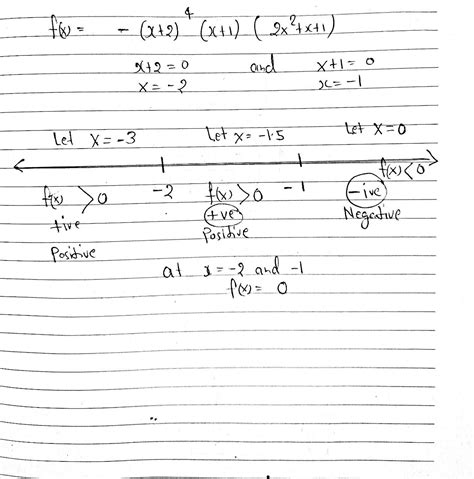 f(x) = - (x+2)⁴ (x+1) (2x²+x+1)
x+2 = 0 and x+1 = 0
x = -2 x = -1
Let x = -3 Let x = -1.5 Let x = 0
f(x) > 0 -2 f(x) > 0 -1 f(x) < 0
+ive +ve -ive
Positive Positive Negative
at x = -2 and -1
f(x) = 0